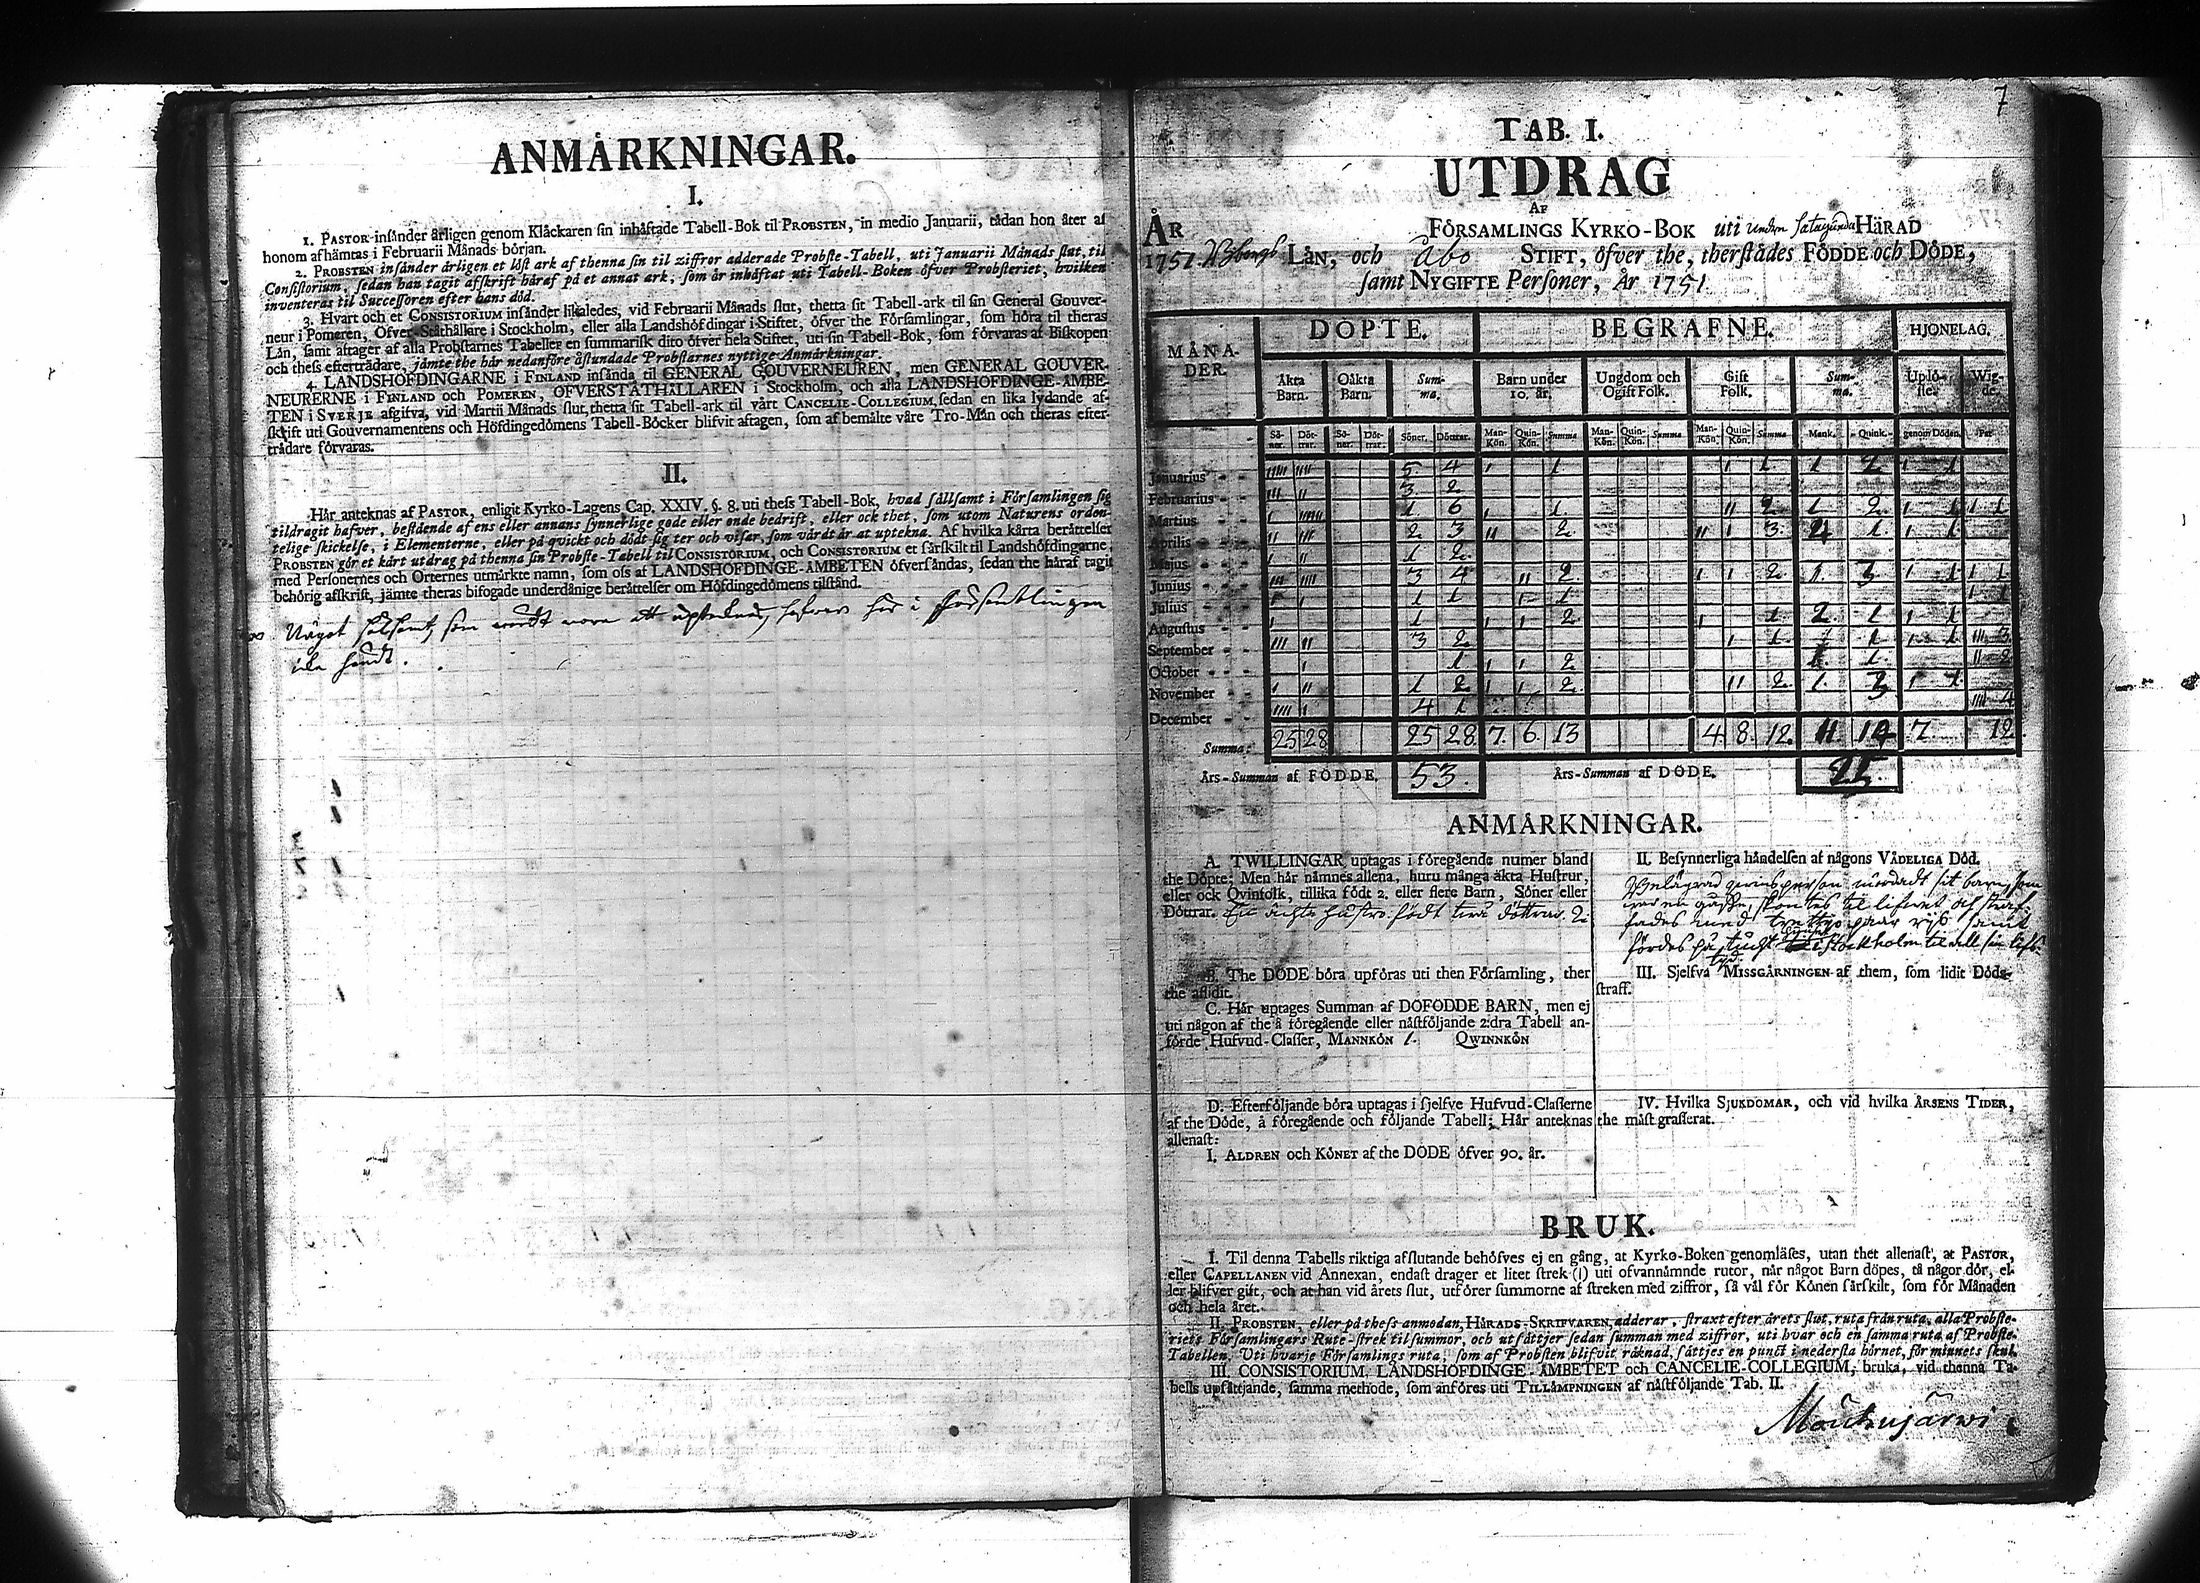 ANMÅRKNINGAR.
I.
1. PASTOR insånder årligen genom Klåckaren sin inhåftade Tabell-Bok til PROBSTEN, in medio Januarii, tådan hon åter af
honom afhåmtas i Februarii Månads början.
2. PROBSTEN insånder årligen et lôst ark af thenna sin til ziffror adderade Probste-Tabell, uti Januarii Månads slut, til
Consistorium, sedan han tagit afskrift håraf på et annat ark, som år inhåftat uti Tabell-Boken ôfver Probsteriet, hvilken
inventeras til Successoren efter hans dôd.
3. Hvart och et CONSISTORIUM insånder likaledes, vid Februarii Månads slut, thetta sit Tabell-ark til sin General Gouver-
neur i Pomeren, Öfver-Ståthållare i Stockholm, eller alla Landshôfdingar i Stiftet, ôfver the Fôrsamlingar, som hôra til theras
Lån, samt aftager af alla Probstarnes Tabeller en summarisk dito ôfver hela Stiftet, uti sin Tabell-Bok, som fôrvaras af Biskopen
och thess eftertrådare, jåmte the hår nedanfôre åstundade Probstarnes nyttige Anmårkningar.
4. LANDSHÔFDINGARNE i FINLAND insånda til GENERAL GOUVERNEUREN, men GENERAL GOUVER-
NEURERNE i FINLAND och POMEREN, ÔFVERSTÅTHÅLLAREN i Stockholm, och alla LANDSHÔFDINGE-ÅMBE-
TEN i SVERJE afgifva, vid Martii Månads slut, thetta sit Tabell-ark til vårt CANCELIE-COLLEGIUM, sedan en lika lydande af-
skrift uti Gouvernamentens och Hôfdingedômens Tabell-Bôcker blifvit aftagen, som af bemålte våre Tro-Mån och theras efter-
trådare fôrvaras.
II.
Hår anteknas af PASTOR, enligit Kyrko-Lagens Cap. XXIV. §. 8. uti thess Tabell-Bok, hvad sållsamt i Fôrsamlingen sig
tildragit hafver, bestående af ens eller annans synnerlige gode eller onde bedrift, eller ock thet, som utom Naturens orden-
telige skickelse, i Elementerne, eller på qvickt och dôdt sig ter och visar, som vårdt år at uptekna. Af hvilka kårta beråttelser
PROBSTEN gôr et kårt utdrag på thenna sin Probste-Tabell til CONSISTORIUM, och CONSISTORIUM et sårskilt til Landshôfdingarne,
med Personernes och Orternes utmårkte namn, som oss af LANDSHÔFDINGE-ÅMBETEN ôfversåndas, sedan the håraf tagit
behôrig afskrift, jåmte theras bifogade underdånige beråttelser om Hôfdingedômens tilstånd.
Något sålsamt, som wårdt wore att upteckna, hafwer här i Församlingen
icke händt.
7
TAB. I.
UTDRAG
AF
ÅR
FÔRSAMLINGS KYRKO-BOK uti Satagunda HÄRAD
1751. LÅN, och Åbo STIFT, ôfver the, therstådes FÔDDE och DÔDE,
samt NYGIFTE Personer, År 1751
MÅNA-
DER.
DÔPTE. BEGRAFNE. HJONELAG.
Åkta Barn. Oåkta Barn. Sum-ma. Barn under 10. år. Ungdom och Ogift Folk. Gift Folk. Sum-ma. Uplô-ste. Wig-de.
Sô-ner. Dôt-trar. Sô-ner. Dôt-trar. Sôner. Dôttrar. Man-Kôn. Quin-Kôn. Summa Man-Kôn. Quin-Kôn. Summa Man-Kôn. Quin-Kôn. Summa Mank. Quink. genom Dôden. Par
Januarius 5. 4 1 1. 1 2 1
Februarius 3. 2
Martius 1 6 1. 2 1 2. 1 1
Aprilis 2 3 2. 3. 2 1. 1
Majus 1 2.
Junius 3 4 2. 2 1. 3 1 1
Julius 1 1 1 1
Augustus 1 2 1. 2. 1 1
September 3 2 1 1 1 3
October 1 2 1 1. 2
November 1 2 2. 2. 1. 3 1.
December 4 1 4
Summa: 25 28 25 28 7. 6. 13 4. 8. 12. 11 14 7 12.
Års-Summan af FÔDDE. 53. Års-Summan af DÔDE. 25.
ANMÅRKNINGAR.
A. TWILLINGAR uptagas i fôregående numer bland
the Dôpte: Men hår nåmnes allena, huru många åkta Hustrur,
eller ock Qvinfolk, tillika fôdt 2. eller flere Barn, Sôner eller
Dôttrar. En ächta hustro födt twå döttrar 2.
B. The DÔDE bôra upfôras uti then Fôrsamling, ther
the aflidit.
C. Hår uptages Summan af DÔFÔDDE BARN, men ej
uti någon af the å fôregående eller nåstfôljande 2:dra Tabell an-
fôrde Hufvud-Classer, MANNKÔN 1. QWINNKÔN
D. Efterfôljande bôra uptagas i sjelfve Hufvud-Classerne
af the Dôde, å fôregående och fôljande Tabell; Hår anteknas
allenast:
I. ÅLDREN och KÔNET af the DÔDE ôfver 90. år.
II. Besynnerliga håndelsen af någons VÅDELIGA Dôd.
qwinsperson mördadt sit barn, som
war en gåsse, til lifwet och straf-
fades med par rijs samt
fördes på Stockholm til all sin lifs-
tijd
III. Sjelfva MISSGÅRNINGEN af them, som lidit Dôds-
straff.
IV. Hvilka SJUKDOMAR, och vid hvilka ÅRSENS TIDER,
the måst grasserat.
BRUK.
I. Til denna Tabells riktiga afslutande behôfves ej en gång, at Kyrko-Boken genomlåses, utan thet allenast, at PASTOR,
eller CAPELLANEN vid Annexan, endast drager et litet strek (|) uti ofvannåmnde rutor, når något Barn dôpes, tå någor dôr, el-
ler blifver gift, och at han vid årets slut, utfôrer summorne af streken med ziffror, så vål fôr Kônen sårskilt, som fôr Månaden
och hela året.
II. PROBSTEN, eller på thess anmodan, HÅRADS-SKRIFVAREN, adderar, straxt efter årets slut, ruta från ruta, alla Probste-
riets Fôrsamlingars Rute-strek til summor, och utsåttjer sedan summan med ziffror, uti hvar och en samma ruta af Probste-
Tabellen. Uti hvarje Fôrsamlings ruta, som af Probsten blifvit råknad, såttjes en punct i nedersta hôrnet, fôr minnets skul.
III. CONSISTORIUM, LANDSHÔFDINGE-ÅMBETET och CANCELIE-COLLEGIUM, bruka, vid thenna Ta-
bells upsåttjande, samma methode, som anfôres uti TILLÅMPNINGEN af nåstfôljande Tab. II.
Mouhijärwi